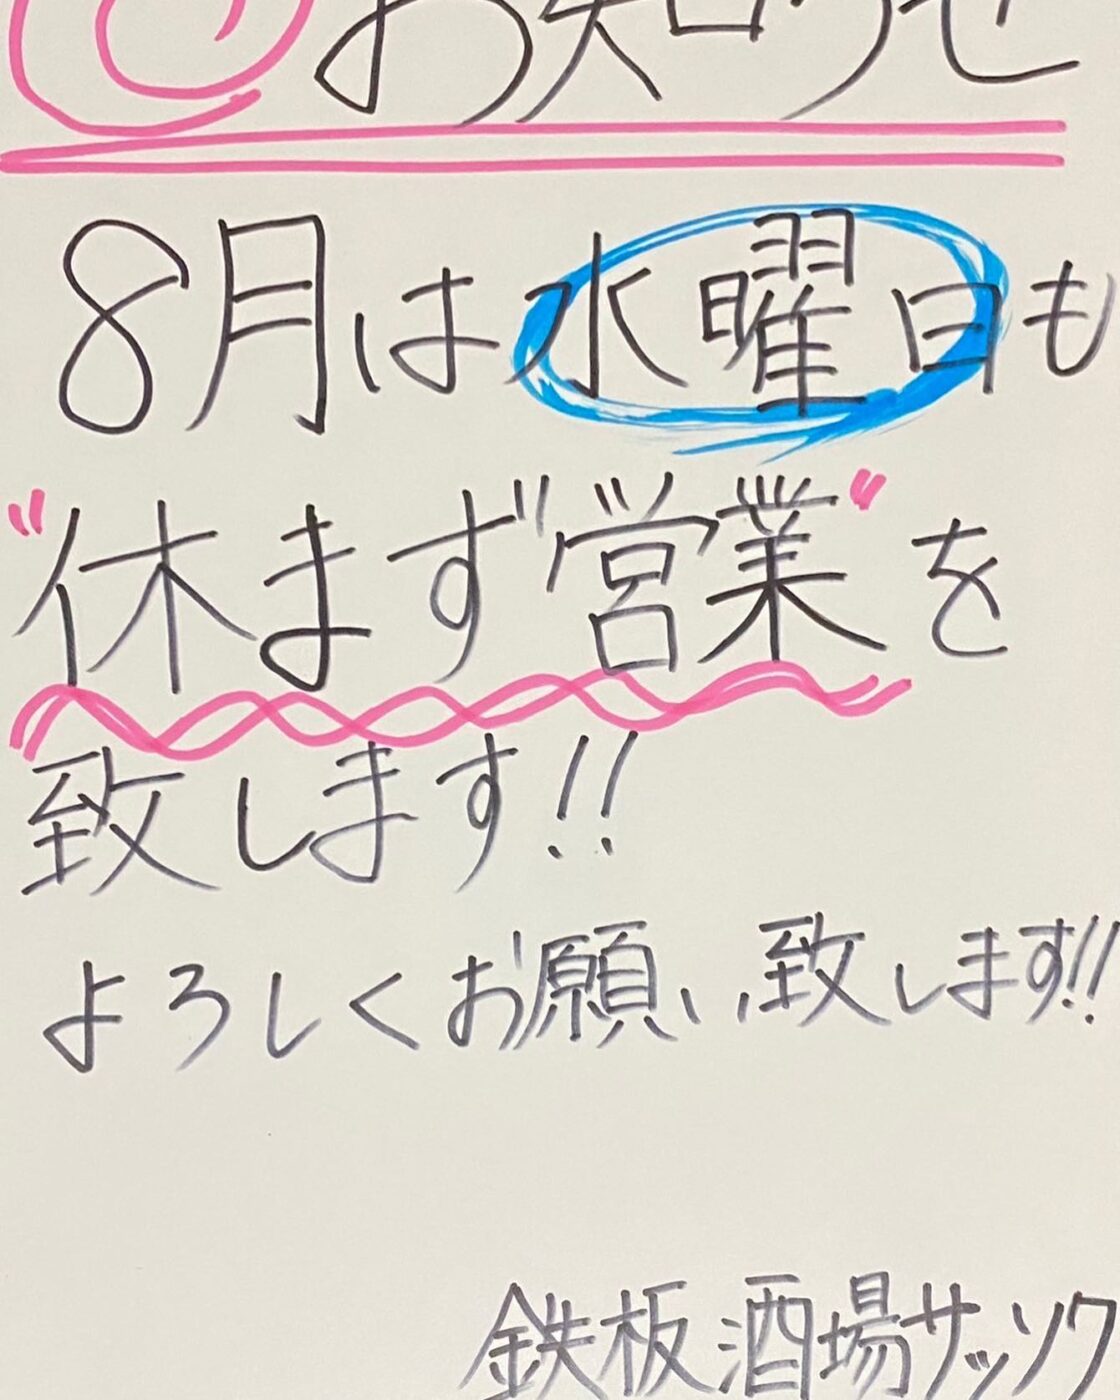 お知らせ
8月は水曜日も
"休まず営業"を
致します!!
よろしくお願い致します!!
鉄板酒場サック